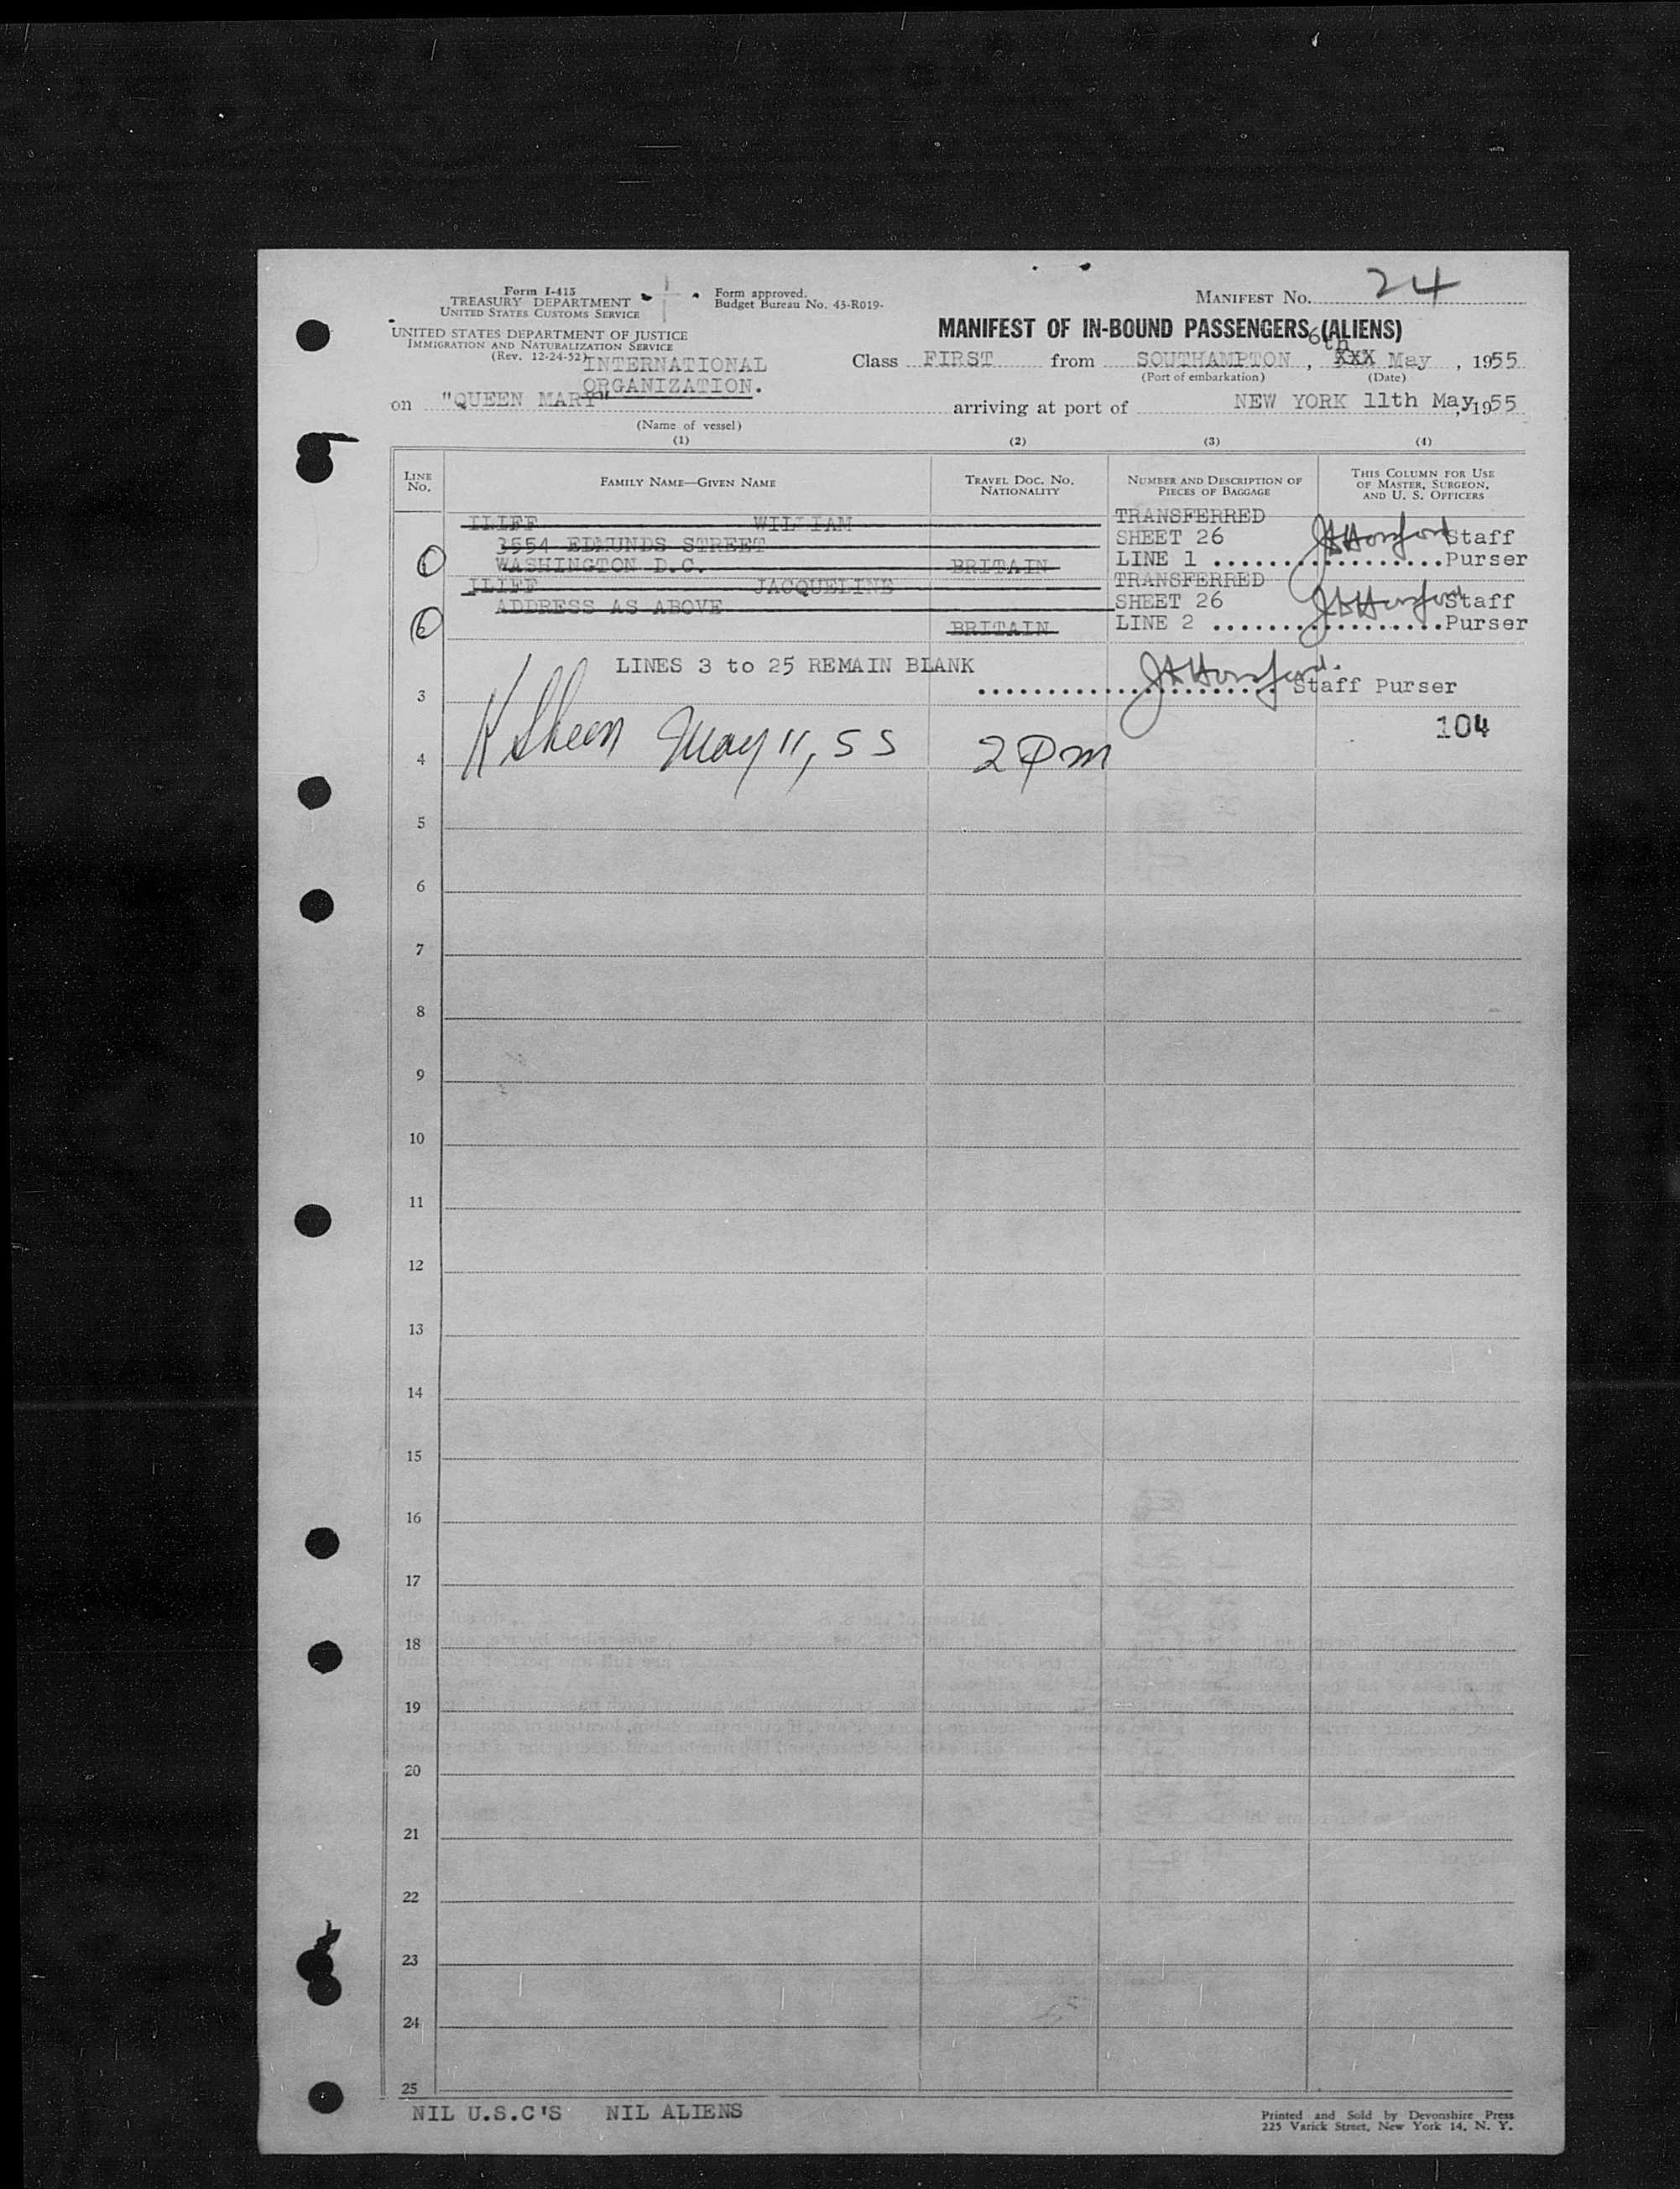 Form I-415
TREASURY DEPARTMENT
UNITED STATES CUSTOMS SERVICE
Form approved.
Budget Bureau No. 43-R019-
MANIFEST No. 24
UNITED STATES DEPARTMENT OF JUSTICE
IMMIGRATION AND NATURALIZATION SERVICE
(Rev. 12-24-52)
INTERNATIONAL
ORGANIZATION.
MANIFEST OF IN-BOUND PASSENGERS (ALIENS)
6th
Class FIRST from SOUTHAMPTON , XXX May , 1955
(Port of embarkation) (Date)
on "QUEEN MARY" arriving at port of NEW YORK 11th May, 1955
(Name of vessel)
(1) (2) (3) (4)
LINE No.
FAMILY NAME—GIVEN NAME
TRAVEL DOC. NO. NATIONALITY
NUMBER AND DESCRIPTION OF PIECES OF BAGGAGE
THIS COLUMN FOR USE OF MASTER, SURGEON, AND U. S. OFFICERS
ILIFF WILLIAM TRANSFERRED
3554 EDMUNDS STREET SHEET 26 Staff
1 WASHINGTON D.C. BRITAIN LINE 1 .................. Purser
ILIFF JACQUELINE TRANSFERRED
ADDRESS AS ABOVE SHEET 26 Staff
2 BRITAIN LINE 2 .................. Purser
LINES 3 to 25 REMAIN BLANK
3 ....................... Staff Purser
104
4 K Sheen May 11, 55 2 Pm
5
6
7
8
9
10
11
12
13
14
15
16
17
18
19
20
21
22
23
24
25
NIL U.S.C'S NIL ALIENS
Printed and Sold by Devonshire Press
225 Varick Street, New York 14, N. Y.